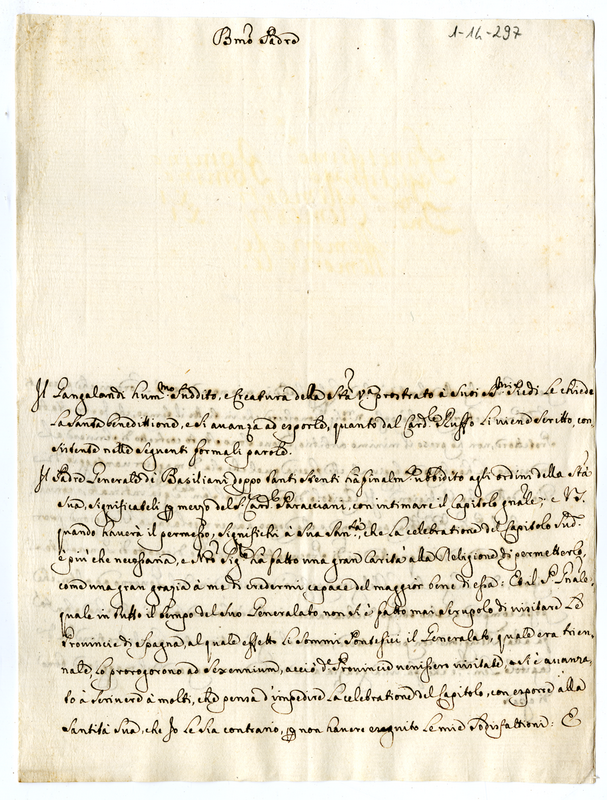 Bmo Padre
1-14-297
Il Gangalandi hum.mo Suddito, e Creatura della Stà Va prostrato à Suoi SSmi Piedi Le chiede
La Santa benedittione, e Si avanza ad esporle, quanto dal Card.le Ruffo Li viene Scritto, con
sistente nelle Seguenti formali parole.
Il Padre Generale de Basiliani doppo tanti Stenti hà finalm.te ubbidito agli ordini della Stà
Sua, significateli p mezzo del S. Card.le Paracciani, con intimare il Capitolo gnale; e VS.
quando haverà il permesso, significhi à Sua San.tà, che La celebratione del Capitolo Sud.o
è più che necessaria, e Nro Sig.re ha fatto una gran Carità alla Religione di permetterlo,
come una gran grazia à me di credermi capace del maggior bene di essa: Ed al P. Gnale,
quale in tutto il tempo del Suo Generalato non si è fatto mai Scrupolo di visitare Le
Provincie di Spagna, al quale effetto Li Sommi Pontefici il Generalato, quale era trien-
nale, Lo prorogorono ad Sexennium, acciò d.e Provincie venissero visitate, e Si è avanza,
to à Scrivere à molti, che pensa d'impedire La celebratione del Capitolo, con esporre alla
Santità Sua, che Io Le Sia contrario, p non havere eseguito Le mie Sodisfattioni: E